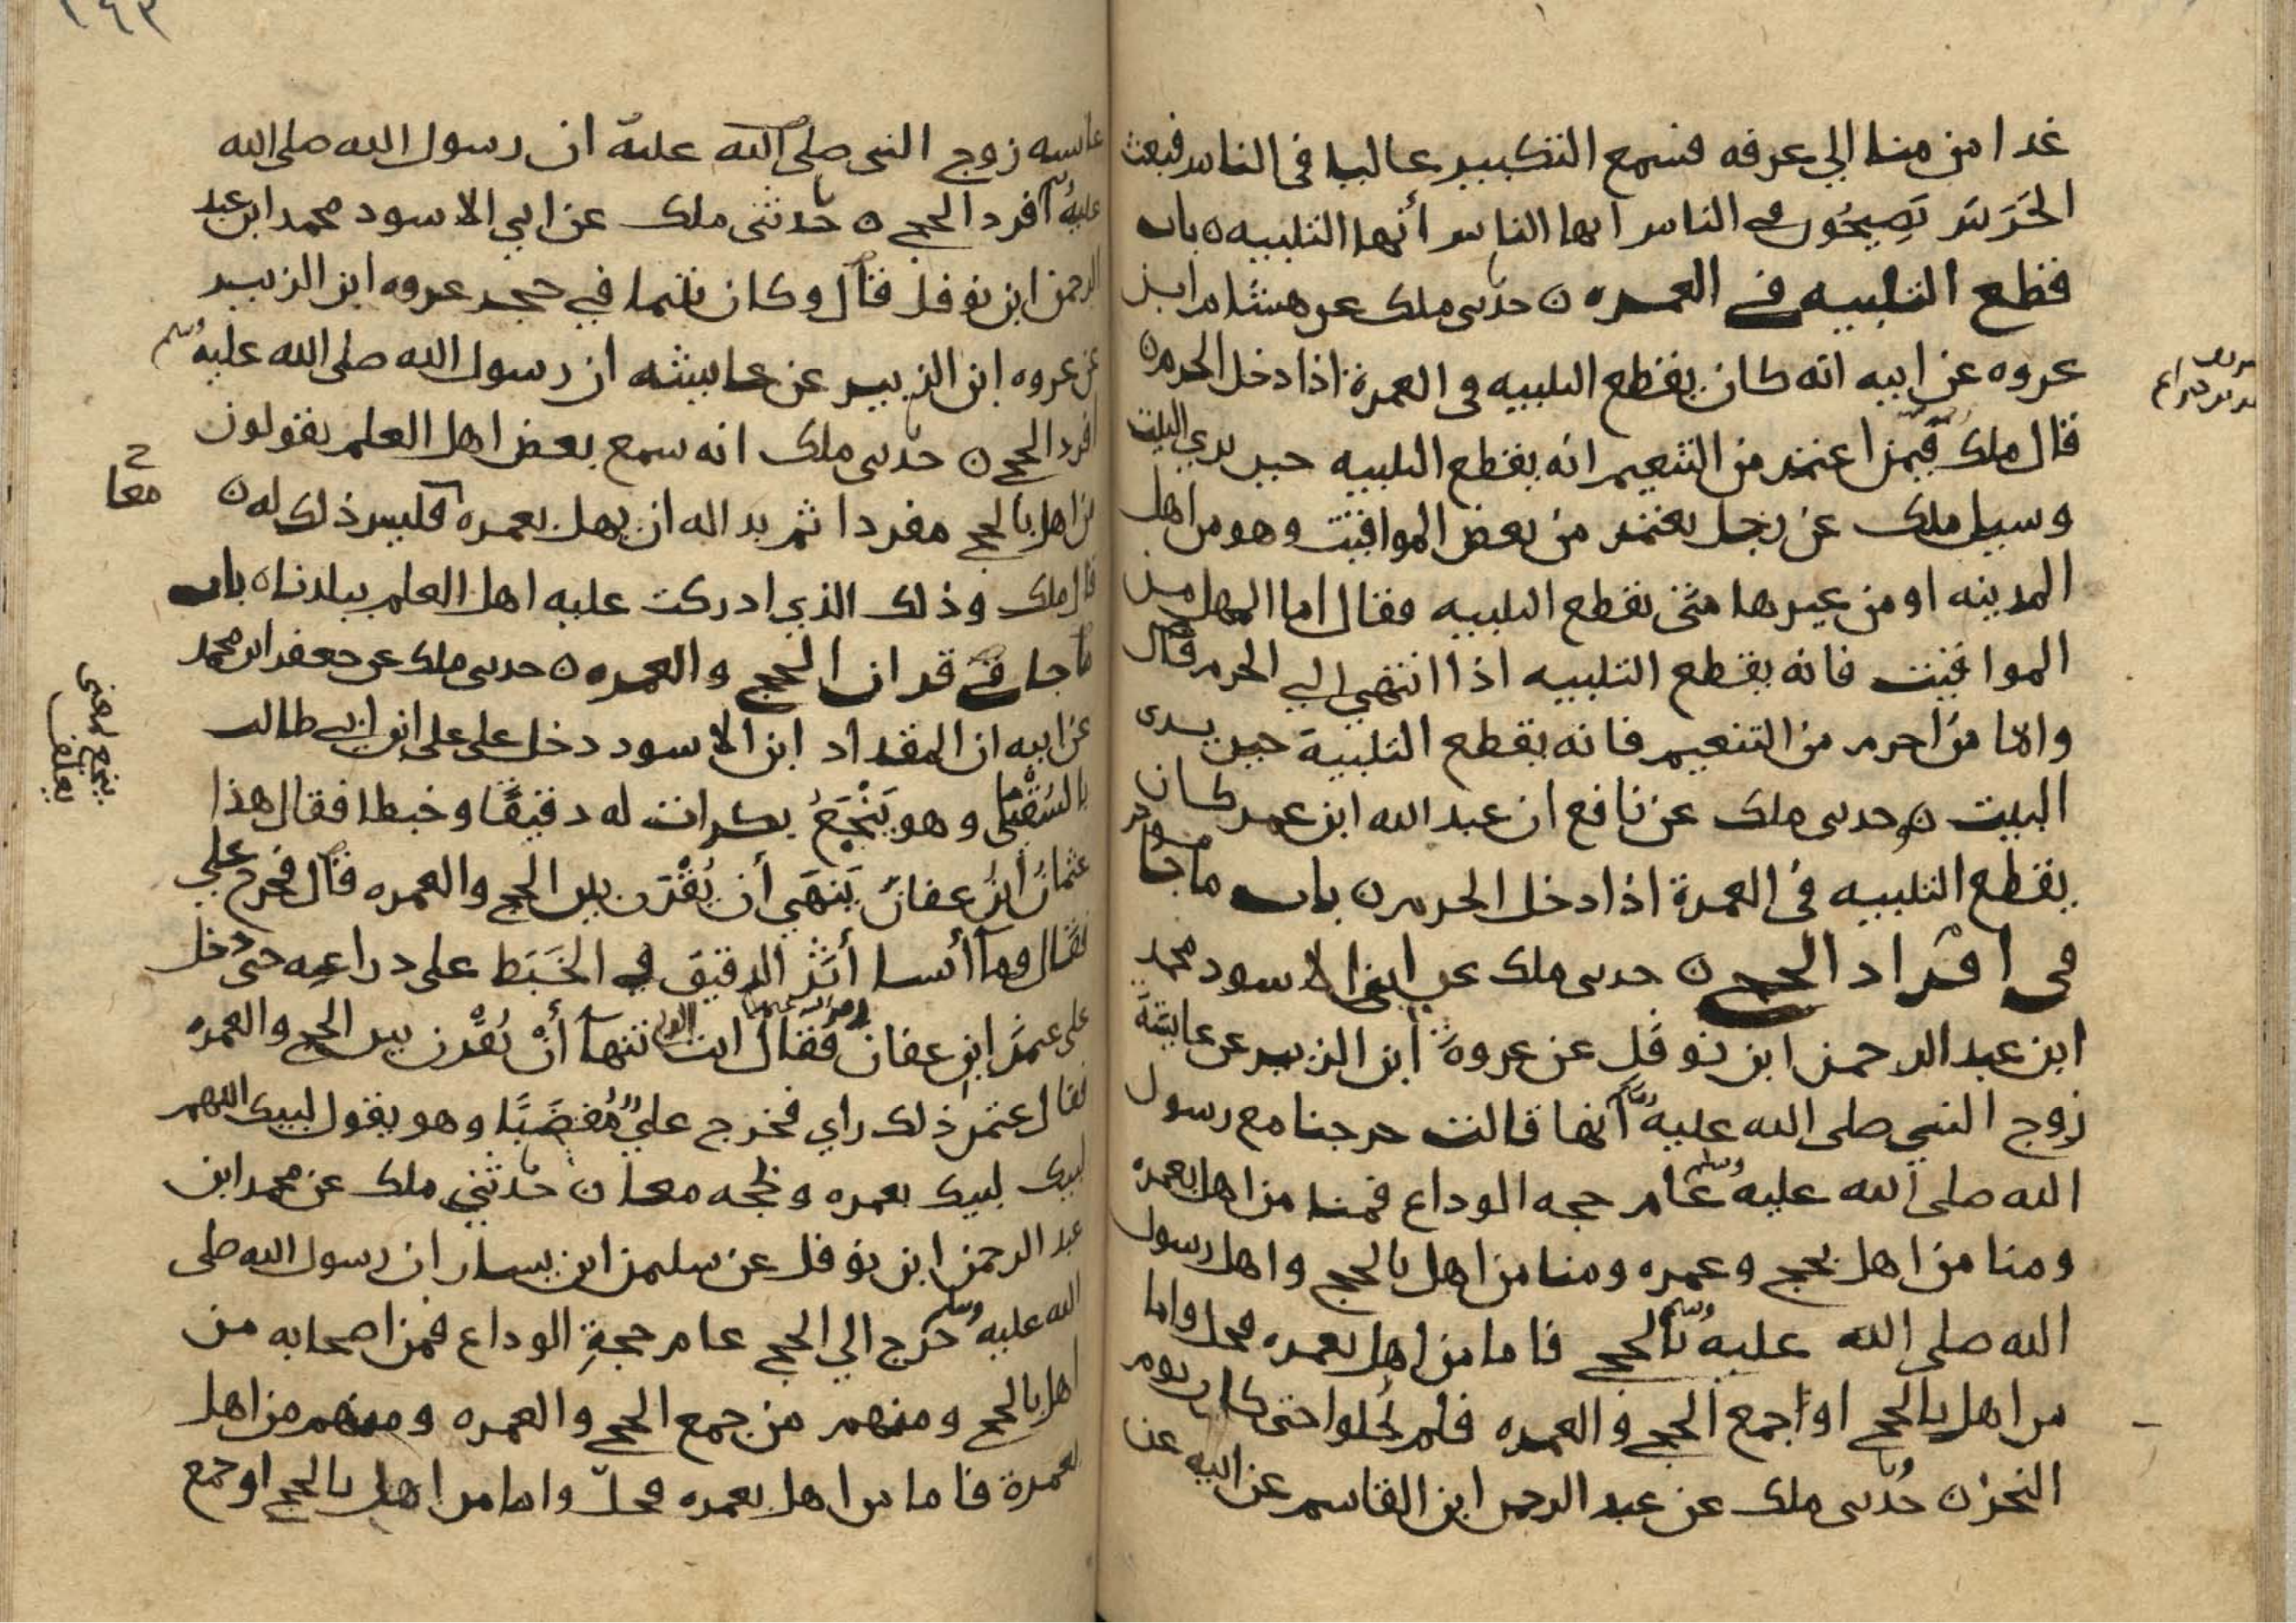 غدا من منا الي عرفه فسمع التكبير عاليا في الناس فبعث
الحَرَسَ يَصِيحُون في الناس ايها الناس أنها التلبيه ٥ باب
قطع التلبيه في العمره ٥ حدثني ملك عن هشام ابن
عروه عن ابيه انه كان يقطع التلبيه في العمرة اذا دخل الحرم ٥
قال ملك فيمن اعتمر من التنعيم انه يقطع التلبيه حين يري البيت
وسيل ملك عن رجل يعتمر من بعض المواقيت وهو من اهل
المدينه او من غيرها متى يقطع التلبيه فقال اما المهل من
المواقيت فانه يقطع التلبيه اذا انتهي الي الحرم قال
واما من احرم من التنعيم فانه يقطع التلبية حين يرى
البيت ٥ حدثني ملك عن نافع ان عبد الله ابن عمر كان
يقطع التلبيه في العمرة اذا دخل الحرم ٥ باب ما جا
في افراد الحج ٥ حدثني ملك عن ابي الاسود محمد
ابن عبد الرحمن ابن نوفل عن عروة ابن الزبير عن عايشة
زوج النبي صلى الله عليه وسلم انها قالت خرجنا مع رسول
الله صلى الله عليه وسلم عام حجه الوداع فمنا من اهل بعمره
ومنا من اهل بحج وعمره ومنا من اهل بالحج واهل رسول
الله صلى الله عليه وسلم بالحج فاما من اهل بعمره فحل واما
من اهل بالحج او اجمع الحج والعمره فلم يحلوا حتى كان يوم
النحر ٥ حدثني ملك عن عبد الرحمن ابن القاسم عن ابيه عن
عايشه زوج النبي صلى الله عليه ان رسول الله صلى الله
عليه وسلم افرد الحج ٥ حدثني ملك عن ابي الاسود محمد ابن عبد
الرحمن ابن نوفل قال وكان يتيما في حجر عروه ابن الزبير
عن عروه ابن الزبير عن عايشه ان رسول الله صلى الله عليه وسلم
افرد الحج ٥ حدثني ملك انه سمع بعض اهل العلم يقولون
من اهل بالحج مفردا ثم بدا له ان يهل بعمره فليس ذلك له ٥
معا
قال ملك وذلك الذي ادركت عليه اهل العلم ببلدنا ٥ باب
ما جا في قران الحج والعمره ٥ حدثني ملك عن جعفر ابن محمد
عن ابيه ان المقداد ابن الاسود دخل على علي ابن ابي طالب
بالسُقْيَا وهو يَنْجَعُ بكرات له دقيقًا وخبطا فقال هذا
ينجع بمعنى يعلف
عثمانُ ابنُ عفان يَنهَي أن يُقْرَن بين الحج والعمره قال فخرج علي
فقال فما أنسا أثَر الدقيق في الخَبَط على دراعيه حتى دخل
على عثمن ابن عفان فقال انت الذي تنهآ أنْ يُقْرن بين الحج والعمره
فقال عثمن ذلك راي فخرج عليٌ مُغضَبًا وهو يقول لبيك اللهم
لبيك لبيك بعمره وبحجه معا ٥ حدثني ملك عن محمد ابن
عبد الرحمن ابن نوفل عن سليمن ابن يسار ان رسول الله صلى
الله عليه وسلم خرج الي الحج عام حجةِ الوداع فمن اصحابه من
اهل بالحج ومنهم من جمع الحج والعمره ومنهم من اهل
بعمرة فاما من اهل بعمره فحلّ واما من اهل بالحج او جمع